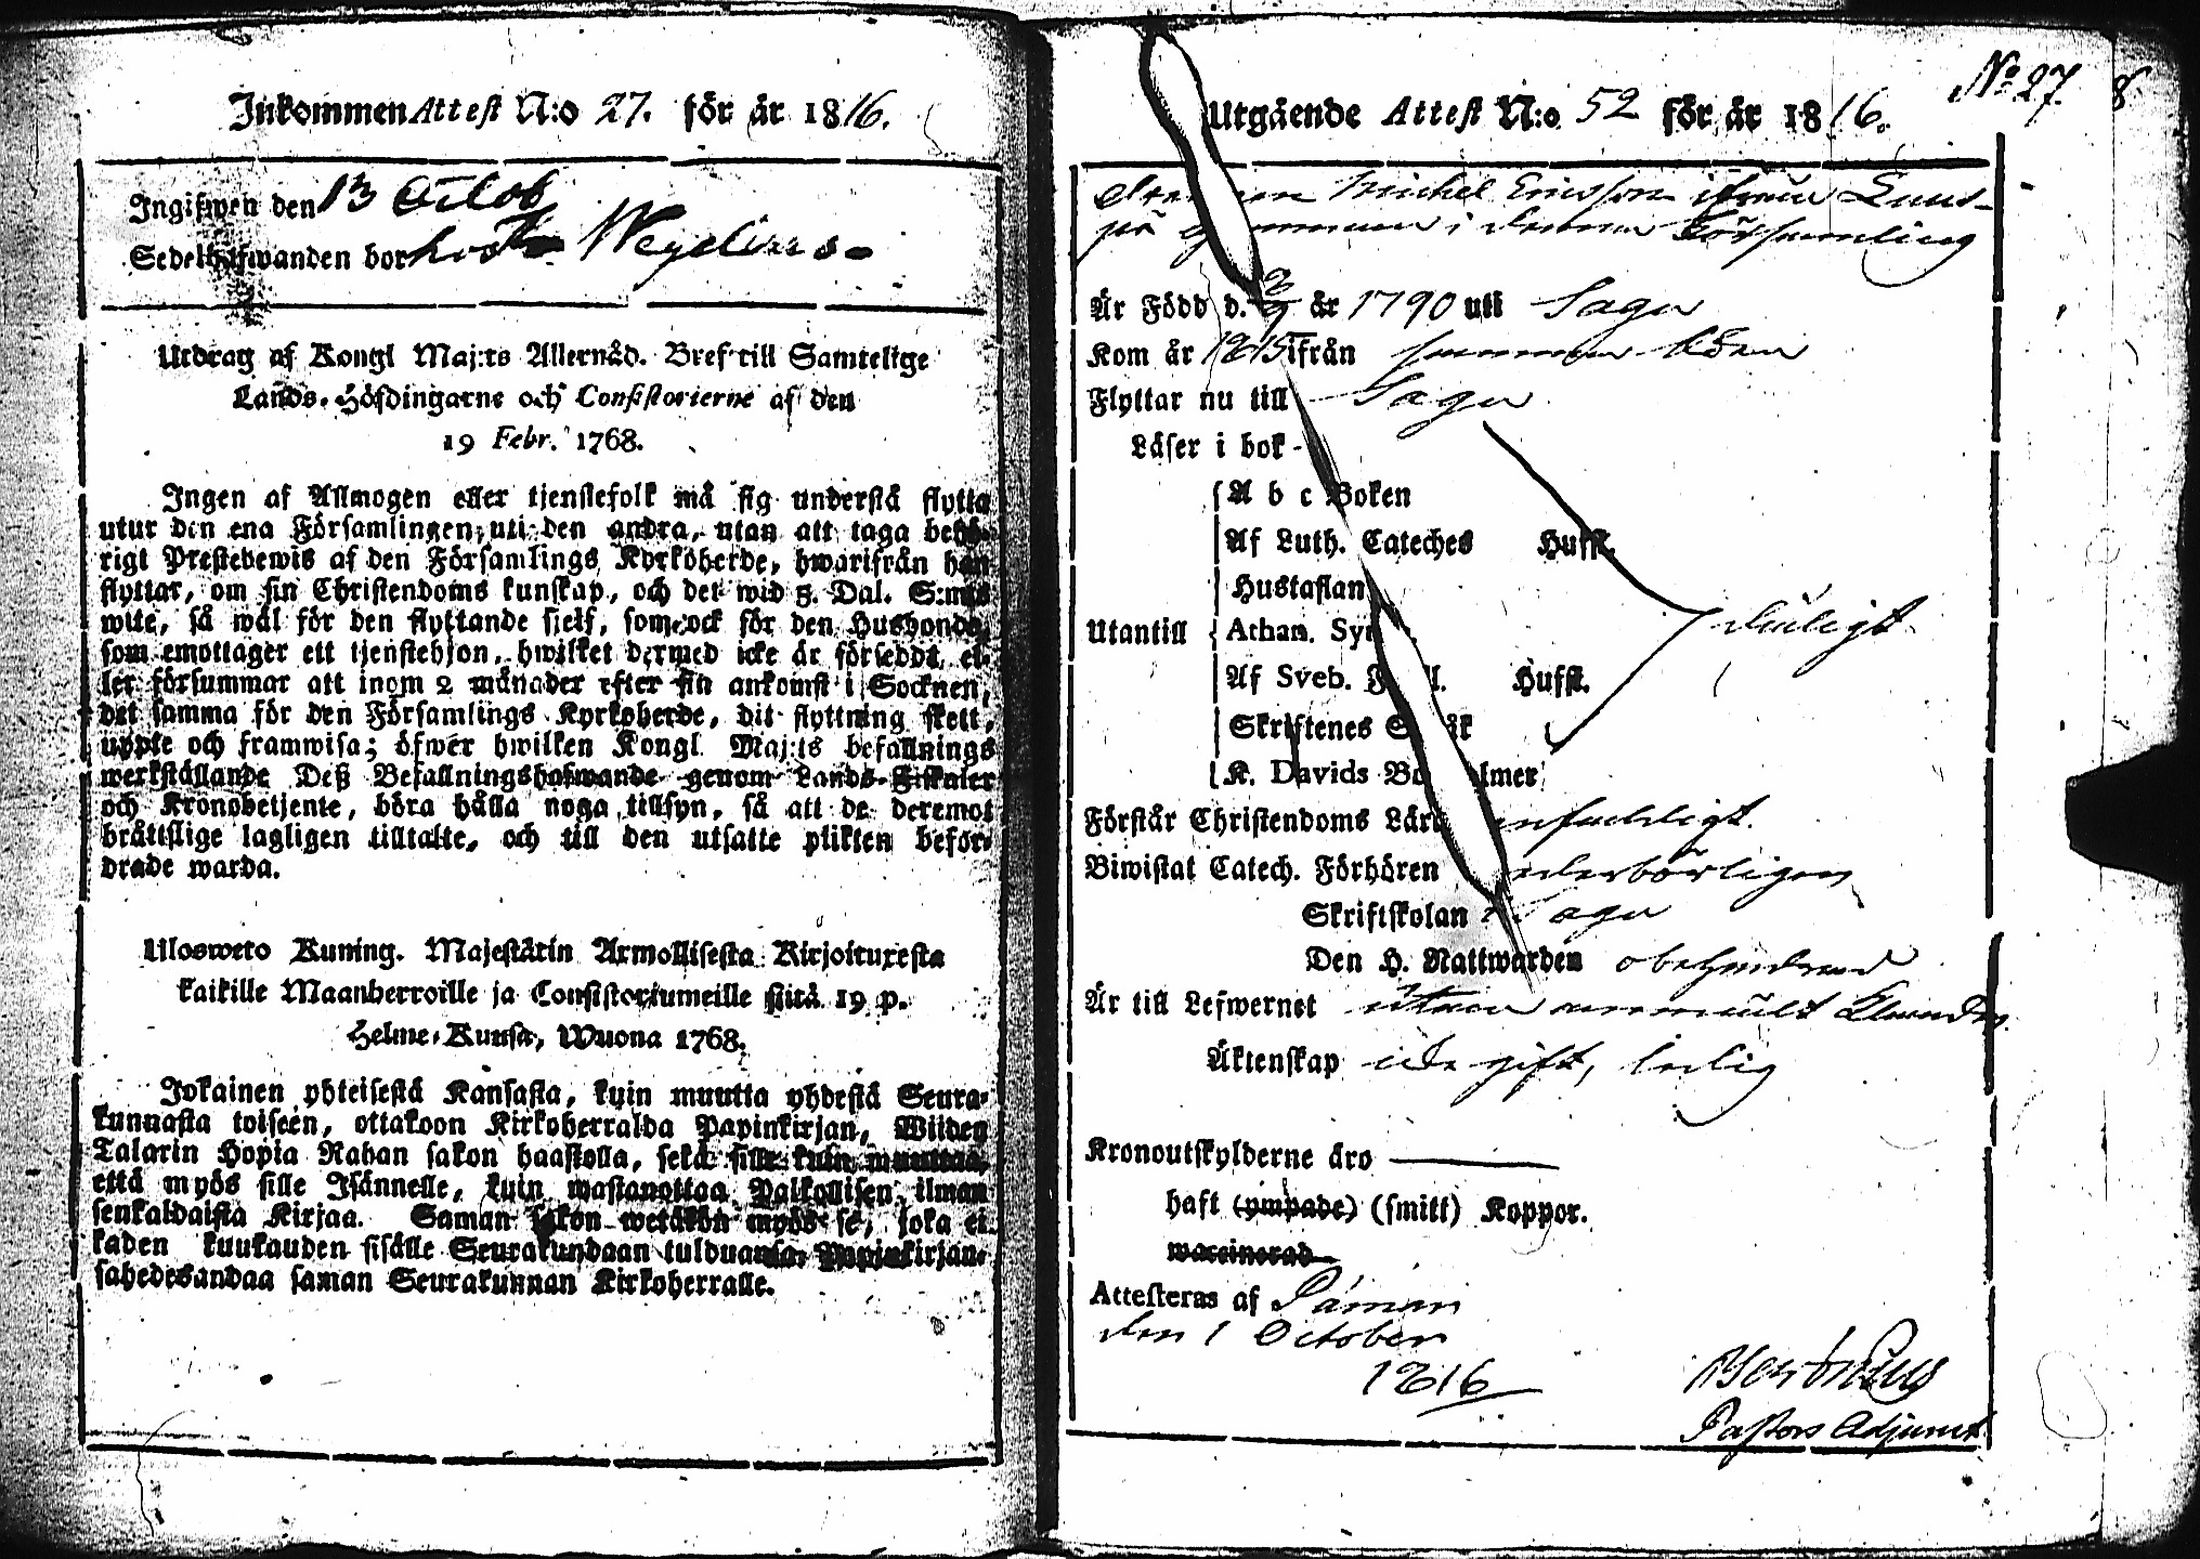 Inkommen Attest N:o 27. för år 1816.
Ingifwen den 13 Octob
Sedelhafwanden bor hos Weydelius
Utdrag af Kongl Maj:ts Allernåd. Bref till Samtelige
Lands-Höfdingarne och Consistorierne af den
19 Febr. 1768.
Ingen af Allmogen eller tjenstefolk må sig understå flytta
utur den ena Församlingen uti den andra, utan att taga behö-
rigt Prestebewis af den Församlings Kyrkoherde, hwarifrån han
flyttar, om sin Christendoms kunskap, och det wid 5. Dal. S:mts
wite, så wäl för den flyttande sjelf, som ock för den Husbonde,
som emottager ett tjenstehjon, hwilket dermed icke är försedt, el-
ler försummar att inom 2 månader efter sin ankomst i Socknen,
det samma för den Församlings Kyrkoherde, dit flyttning skett,
uppte och framwisa; öfwer hwilken Kongl. Maj:ts befallnings
werkställande Deß Befallningshafwande genom Lands-Fiskaler
och Kronobetjente, böra hålla noga tillsyn, så att de deremot
bråttslige lagligen tilltalte, och till den utsatte plikten beför-
drade warda.
Ulosweto Kuning. Majestätin Armollisesta Kirjoituxesta
kaikille Maanherroille ja Consistoriumeille siitä 19 p.
Helme-Kuusa, Wuona 1768.
Jokainen yhteisestä Kansasta, kuin muutta yhdestä Seura-
kunnasta toiseen, ottakoon Kirkoherralda Papinkirjan, Wiiden
Talarin Hopia Rahan sakon haastolla, sekä sille kuin muuttaa,
että myös sille Isännelle, kuin wastanottaa Palkollisen ilman
senkaldaista Kirjaa. Saman sakon wetäkön myös se, joka ei
kaden kuukauden sisälle Seurakundaan tulduansa, Papinkirjan-
sahedesandaa saman Seurakunnan Kirkoherralle.
N:o 27. 8
Utgående Attest N:o 52 för år 1816.
Michel Ericsson ifrån
på i denna Församling
Är Född d. år 1790 uti Sagu
Kom år 1815 ifrån samma
Flyttar nu till Sagu
Läser i bok -
A b c Boken
Af Luth. Cateches Hufst.
Hustaflan
Utantill Athan. Sy
Af Sveb. Hufst.
Skriftenes S k
K. Davids Bo lmer
Förstår Christendoms Lär nfaldigt.
Biwistat Catech. Förhören ederbörligen
Skriftskolan i Sagu
Den H. Nattwarden obehindrad
Är till Lefwernet utan anmält
Äktenskap icke gift, ledig
Kronoutskylderne äro
haft (ympade) (smitt) Koppor.
waccinerad
Attesteras af Pämar
den 1 October
1816
Pastors Adjunct